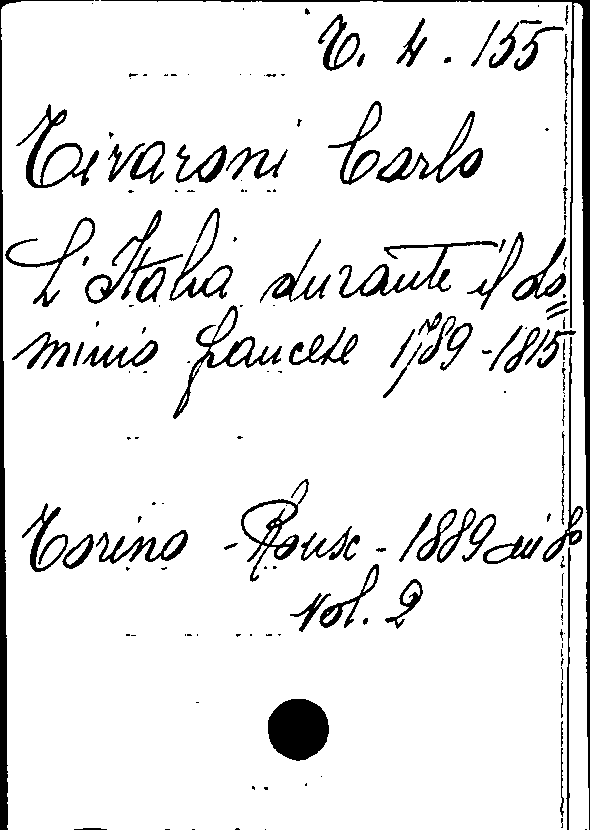 T. 4. 155
Tivaroni Carlo
L'Italia durante il do=
minio francese 1789-1815
Torino - Roux - 1889 in 8º
vol. 2